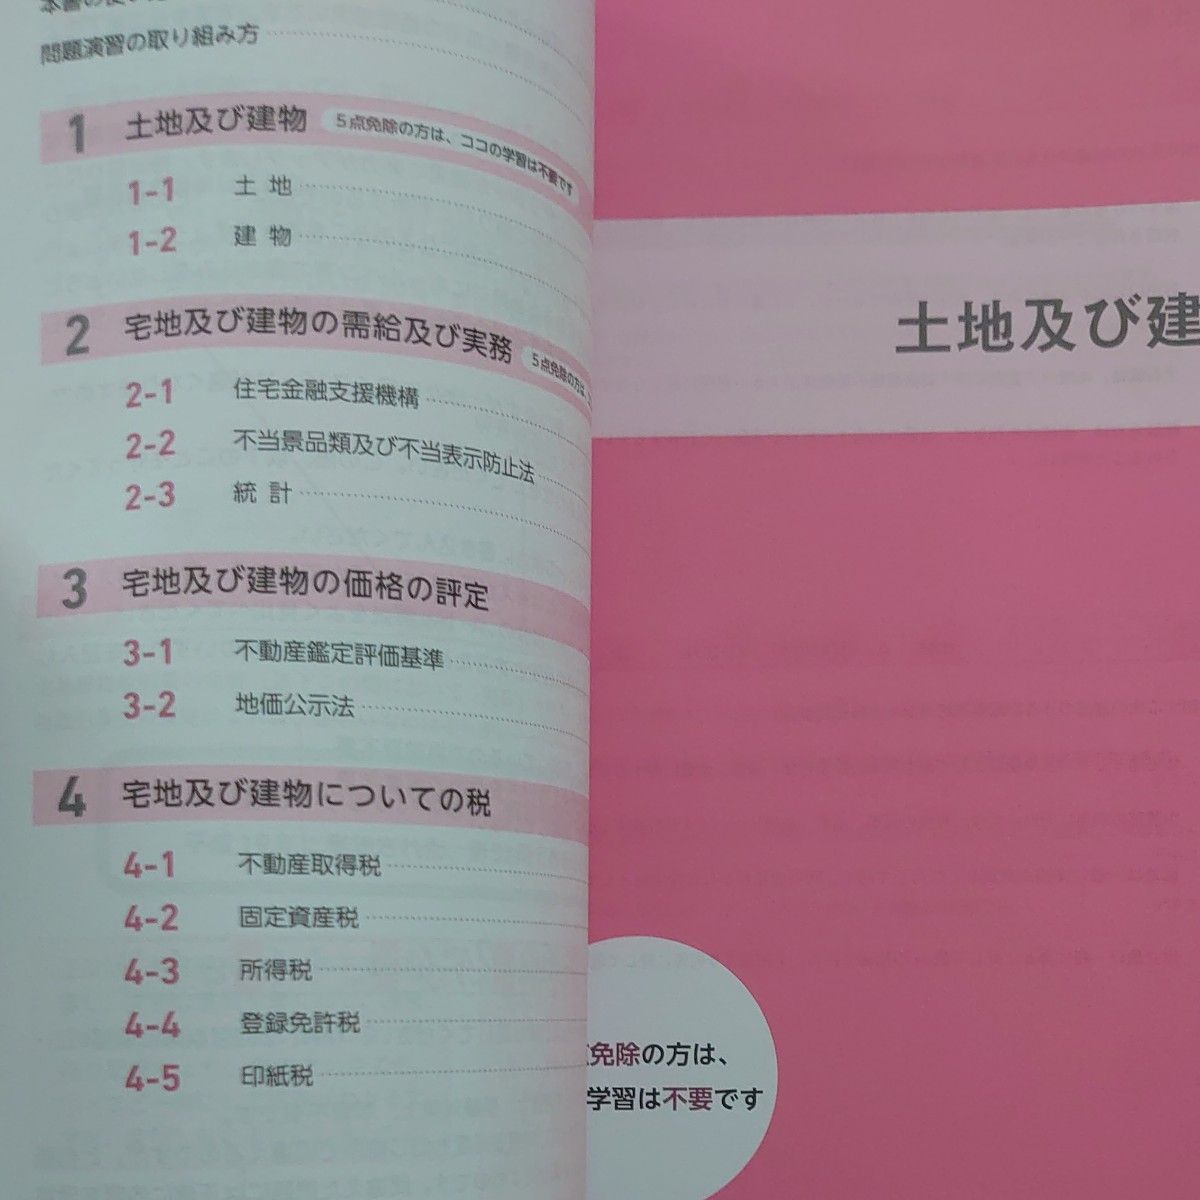 問題演習の取り組み方
1 土地及び建物 5点免除の方は、ココの学習は不要です
1-1 土 地
1-2 建 物
2 宅地及び建物の需給及び実務 5点免除の方は、
2-1 住宅金融支援機構
2-2 不当景品類及び不当表示防止法
2-3 統 計
3 宅地及び建物の価格の評定
3-1 不動産鑑定評価基準
3-2 地価公示法
4 宅地及び建物についての税
4-1 不動産取得税
4-2 固定資産税
4-3 所得税
4-4 登録免許税
4-5 印紙税
土地及び建
免除の方は、
学習は不要です